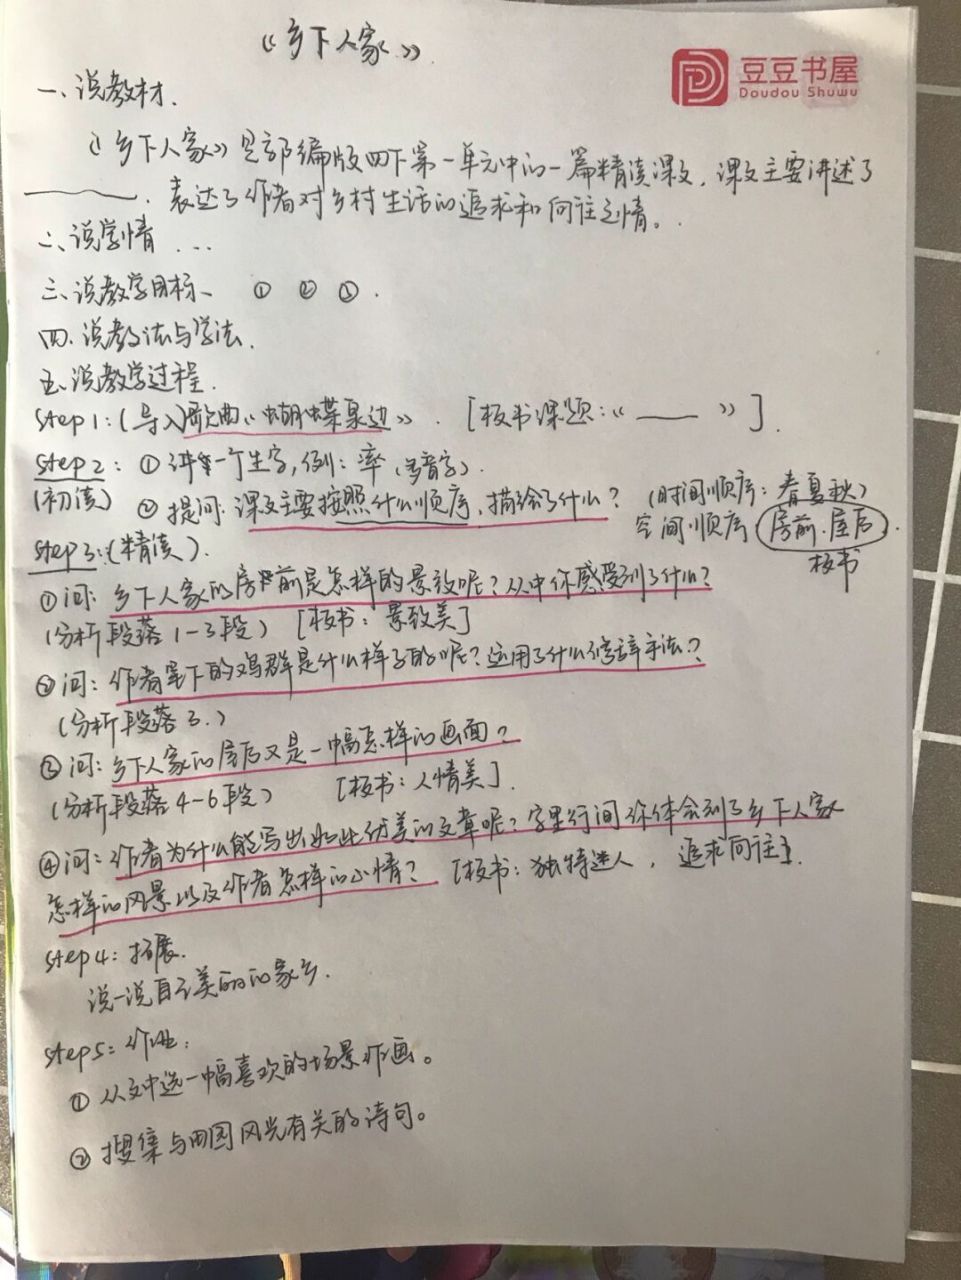 《乡下人家》
豆豆书屋
Doudou Shuwu
一、说教材.
《乡下人家》是部编版四下第一单元中的一篇精读课文，课文主要讲述了
______. 表达了作者对乡村生活的追求和向往之情。
二、说学情 ...
三、说教学目标、 ① ② ③ .
四、说教法与学法.
五、说教学过程.
step1:(导入)歌曲《蝴蝶泉边》. [板书课题:《 ___ 》].
step2: ①讲解一个生字,例:率(多音字).
(初读) ② 提问: 课文主要按照什么顺序、描绘了什么? (时间顺序: 春夏秋)
空间顺序 房前.屋后.
板书
step3:(精读).
①问: 乡下人家的房前是怎样的景致呢?从中你感受到了什么?
(分析段落1-3段) [板书: 景致美]
②问: 作者笔下的鸡群是什么样子的呢?运用了什么修辞手法?
(分析段落3.)
③问: 乡下人家的房后又是一幅怎样的画面?
(分析段落4-6段) [板书:人情美].
④问: 作者为什么能写出如此优美的文章呢?字里行间你体会到了乡下人家
怎样的风景以及作者怎样的心情? [板书: 独特迷人, 追求向往].
step4: 拓展.
说一说自己美丽的家乡.
step5: 作业:
① 从文中选一幅喜欢的场景作画。
② 搜集与田园风光有关的诗句。